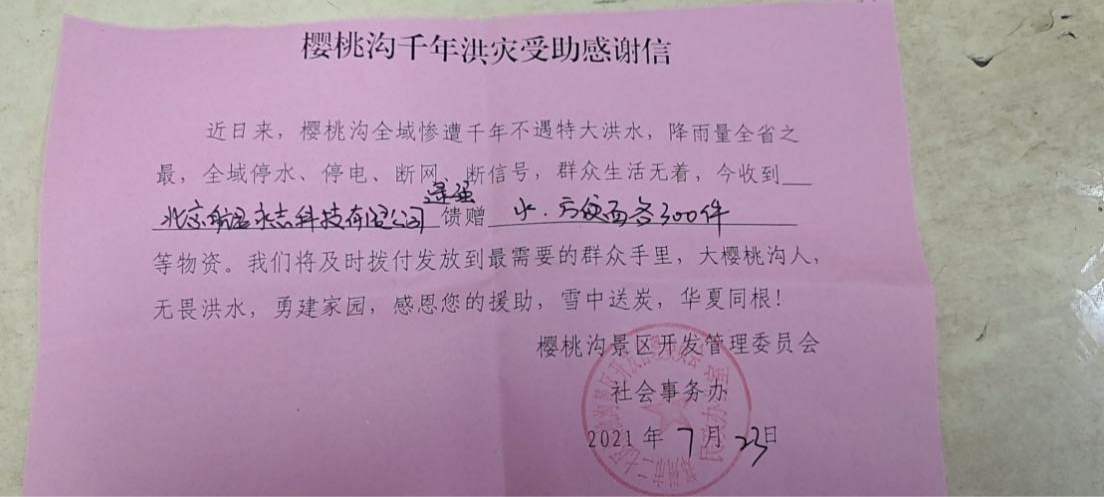 樱桃沟千年洪灾受助感谢信
近日来，樱桃沟全域惨遭千年不遇特大洪水，降雨量全省之
最，全域停水、停电、断网、断信号，群众生活无着，今收到
北京 永志科技有限公司 馈赠 水、方便面各300件
等物资。我们将及时拨付发放到最需要的群众手里，大樱桃沟人，
无畏洪水，勇建家园，感恩您的援助，雪中送炭，华夏同根！
樱桃沟景区开发管理委员会
社会事务办
2021年7月23日